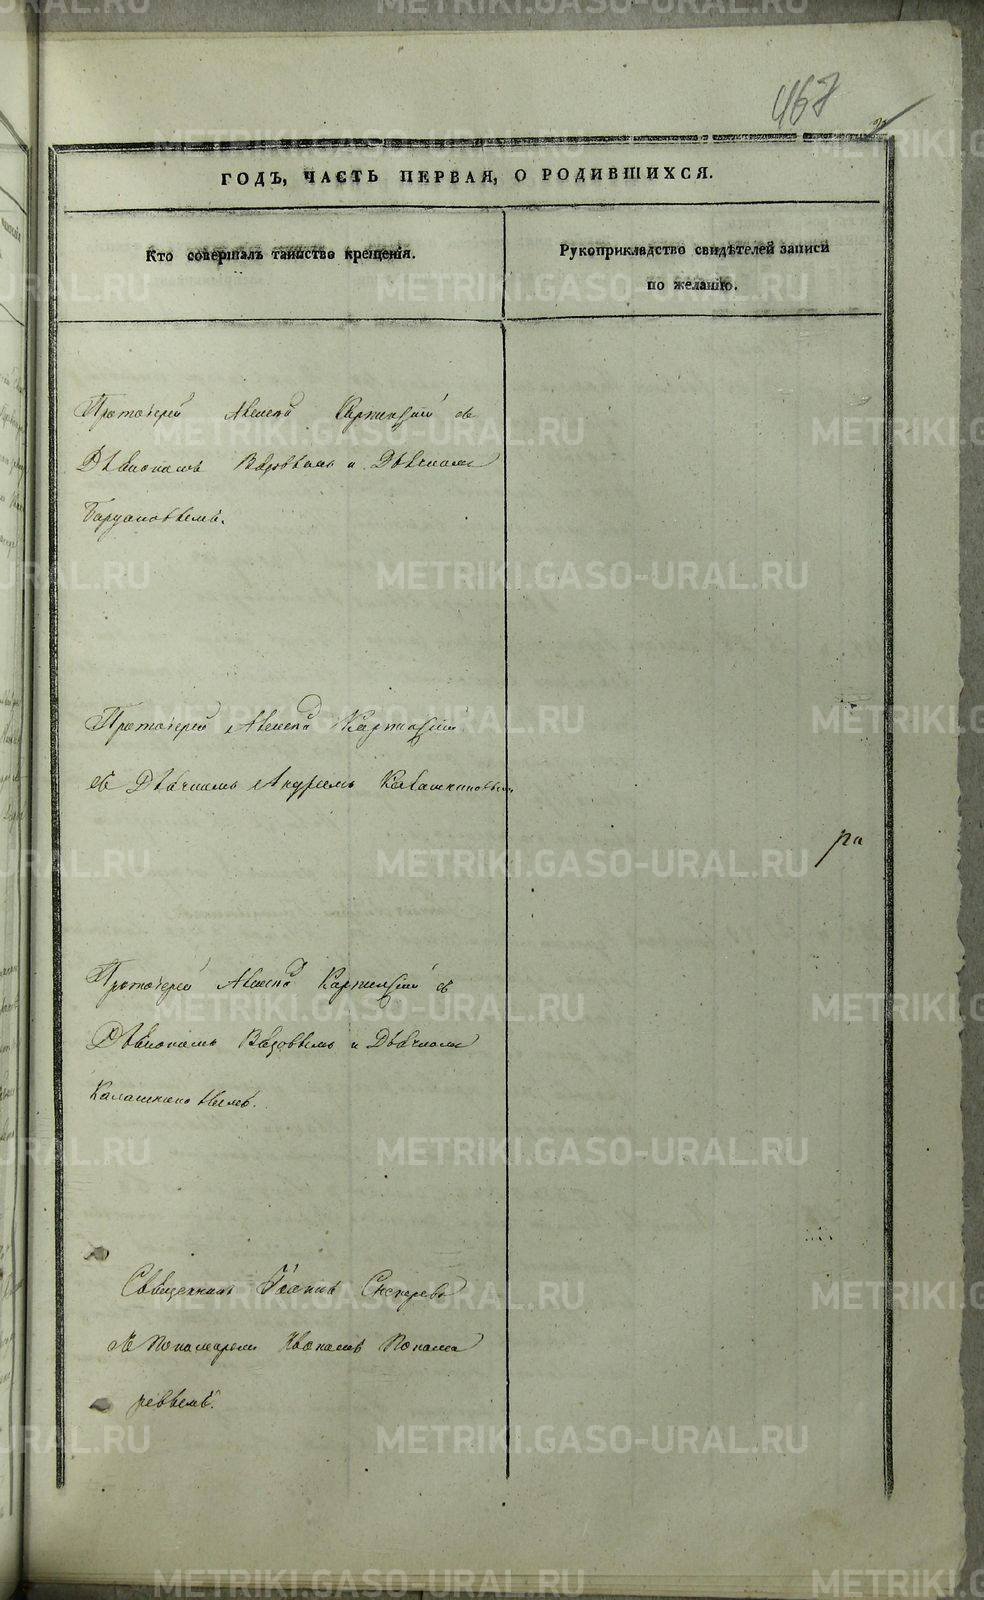 467
ГОДЪ, ЧАСТЬ ПЕРВАЯ, О РОДИВШИХСЯ.
Кто совершалъ таинство крещенія.
Рукоприкладство свидѣтелей записи
по желанію.
Протоіерей Алексѣй Карпинскій съ
Діакономъ и Дьячкомъ
Протоіерей Алексѣй Карпинскій
съ Дьячкомъ Андреемъ Калашниковымъ
ра
Протоіерей Алексѣй Карпинскій съ
Діакономъ и Дьячкомъ
Калашниковымъ.
Священникъ Іоаннъ
съ Пономаремъ Иваномъ Понома
ревымъ.
METRIKI.GASO-URAL.RU